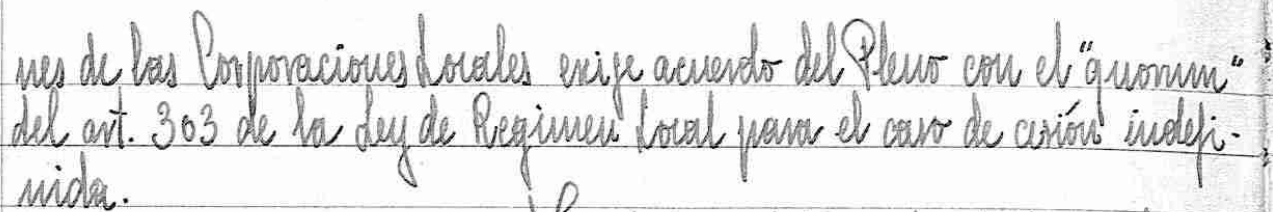 nes de las Corporaciones Locales exige acuerdo del Pleno con el "quorum"
del art. 303 de la Ley de Regimen Local para el caso de cesión indefi-
nida.